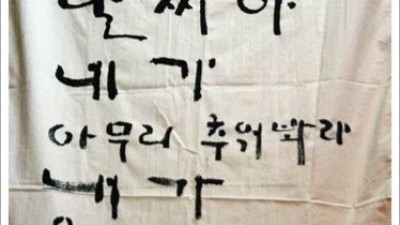 날씨야
네가
아무리 추워봐라
내가